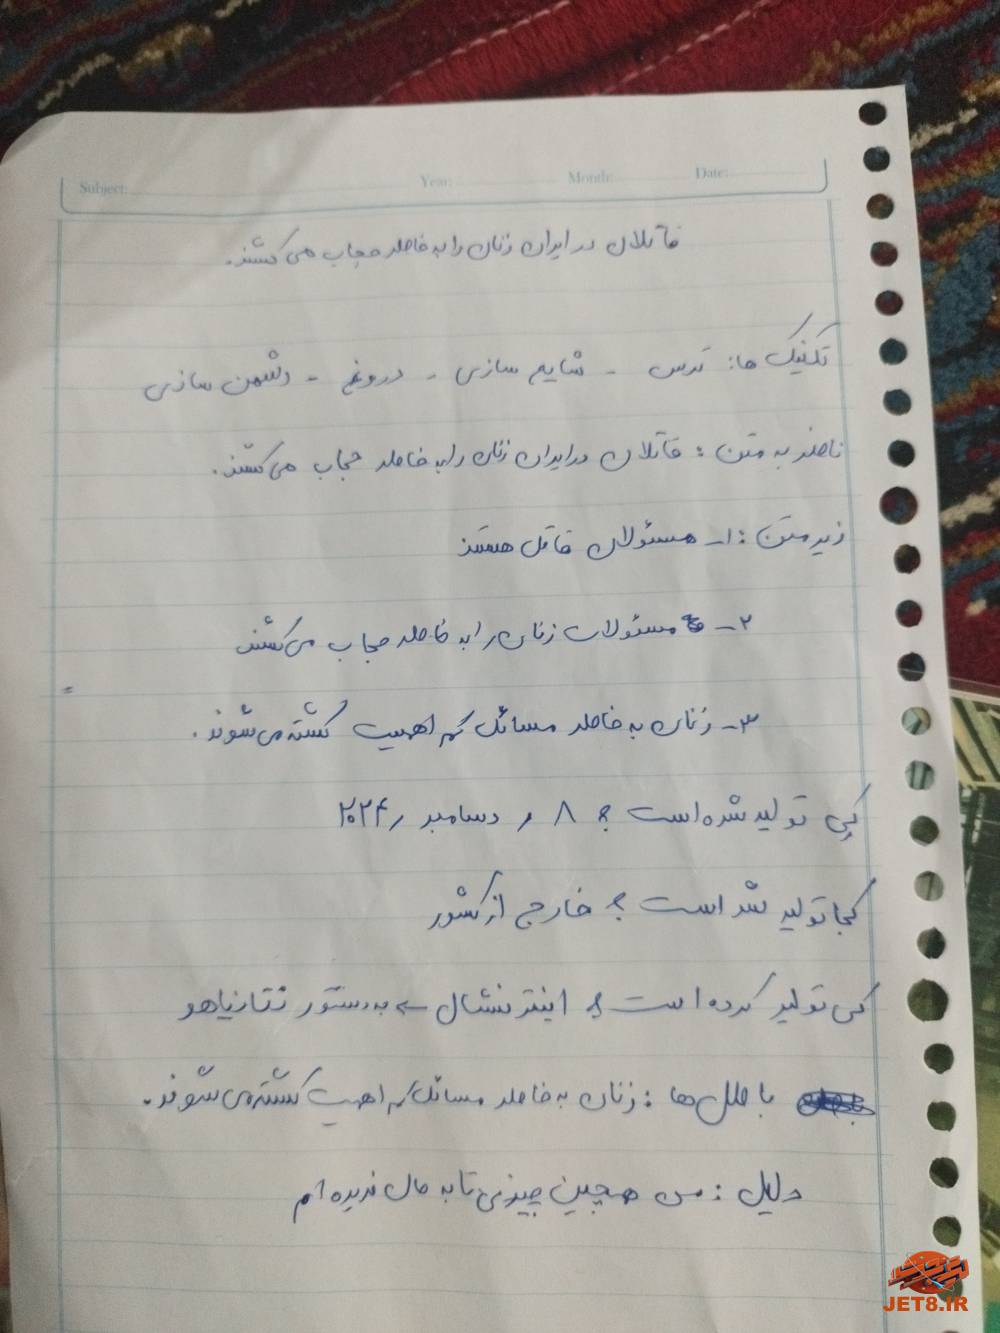 Subject: Year: Month: Date:
قاتلان در ایران زنان را به خاطر حجاب می کشند.
تکنیک ها: ترس - شایعه سازی - دروغ - دشمن سازی
ناظر به متن: قاتلان در ایران زنان را به خاطر حجاب می کشند.
زیر متن: ۱- مسئولان قاتل هستند
۲- مسئولان زنان را به خاطر حجاب می کشند
۳- زنان به خاطر مسائل کم اهمیت کشته می شوند.
کی تولید شده است؟ ۸, دسامبر, ۲۰۲۴
کجا تولید شد است؟ خارج از کشور
کی تولید کرده است؟ اینترنشنال ← به دستور نتانیاهو
باطل ها: زنان به خاطر مسائل کم اهمیت کشته می شوند.
دلیل: من همچین چیزی تا به حال ندیده ام
JET8.IR